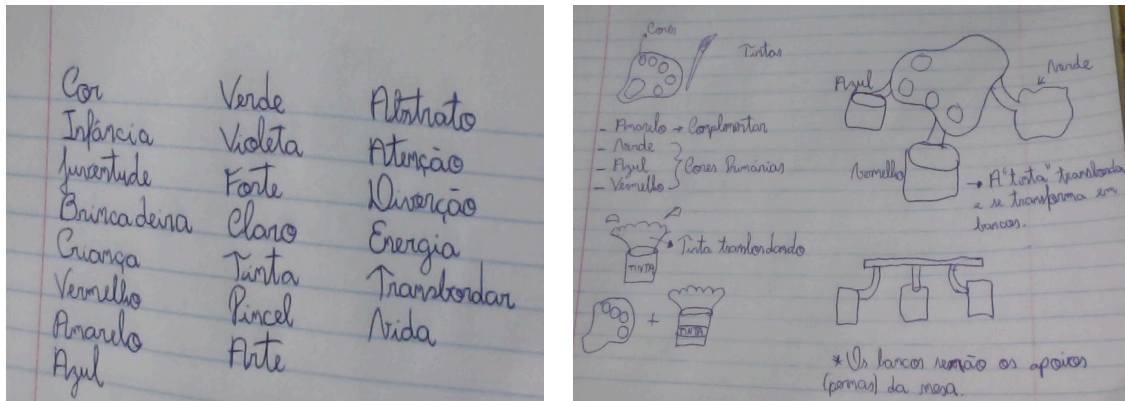 Cor
Infância
Juventude
Brincadeira
Criança
Vermelho
Amarelo
Azul
Verde
Violeta
Forte
Claro
Tinta
Pincel
Arte
Abstrato
Atenção
Diverção
Energia
Transbordar
Vida
Cores
Tintas
- Amarelo → Complementar
- Verde
- Azul
- Vermelho
Cores Primárias
Tinta transbordando
TINTA
+
TINTA
Azul
Verde
Vermelho
→ A "tinta" transborda
e se transforma em
bancos.
* Os bancos serão os apoios
(pernas) da mesa.